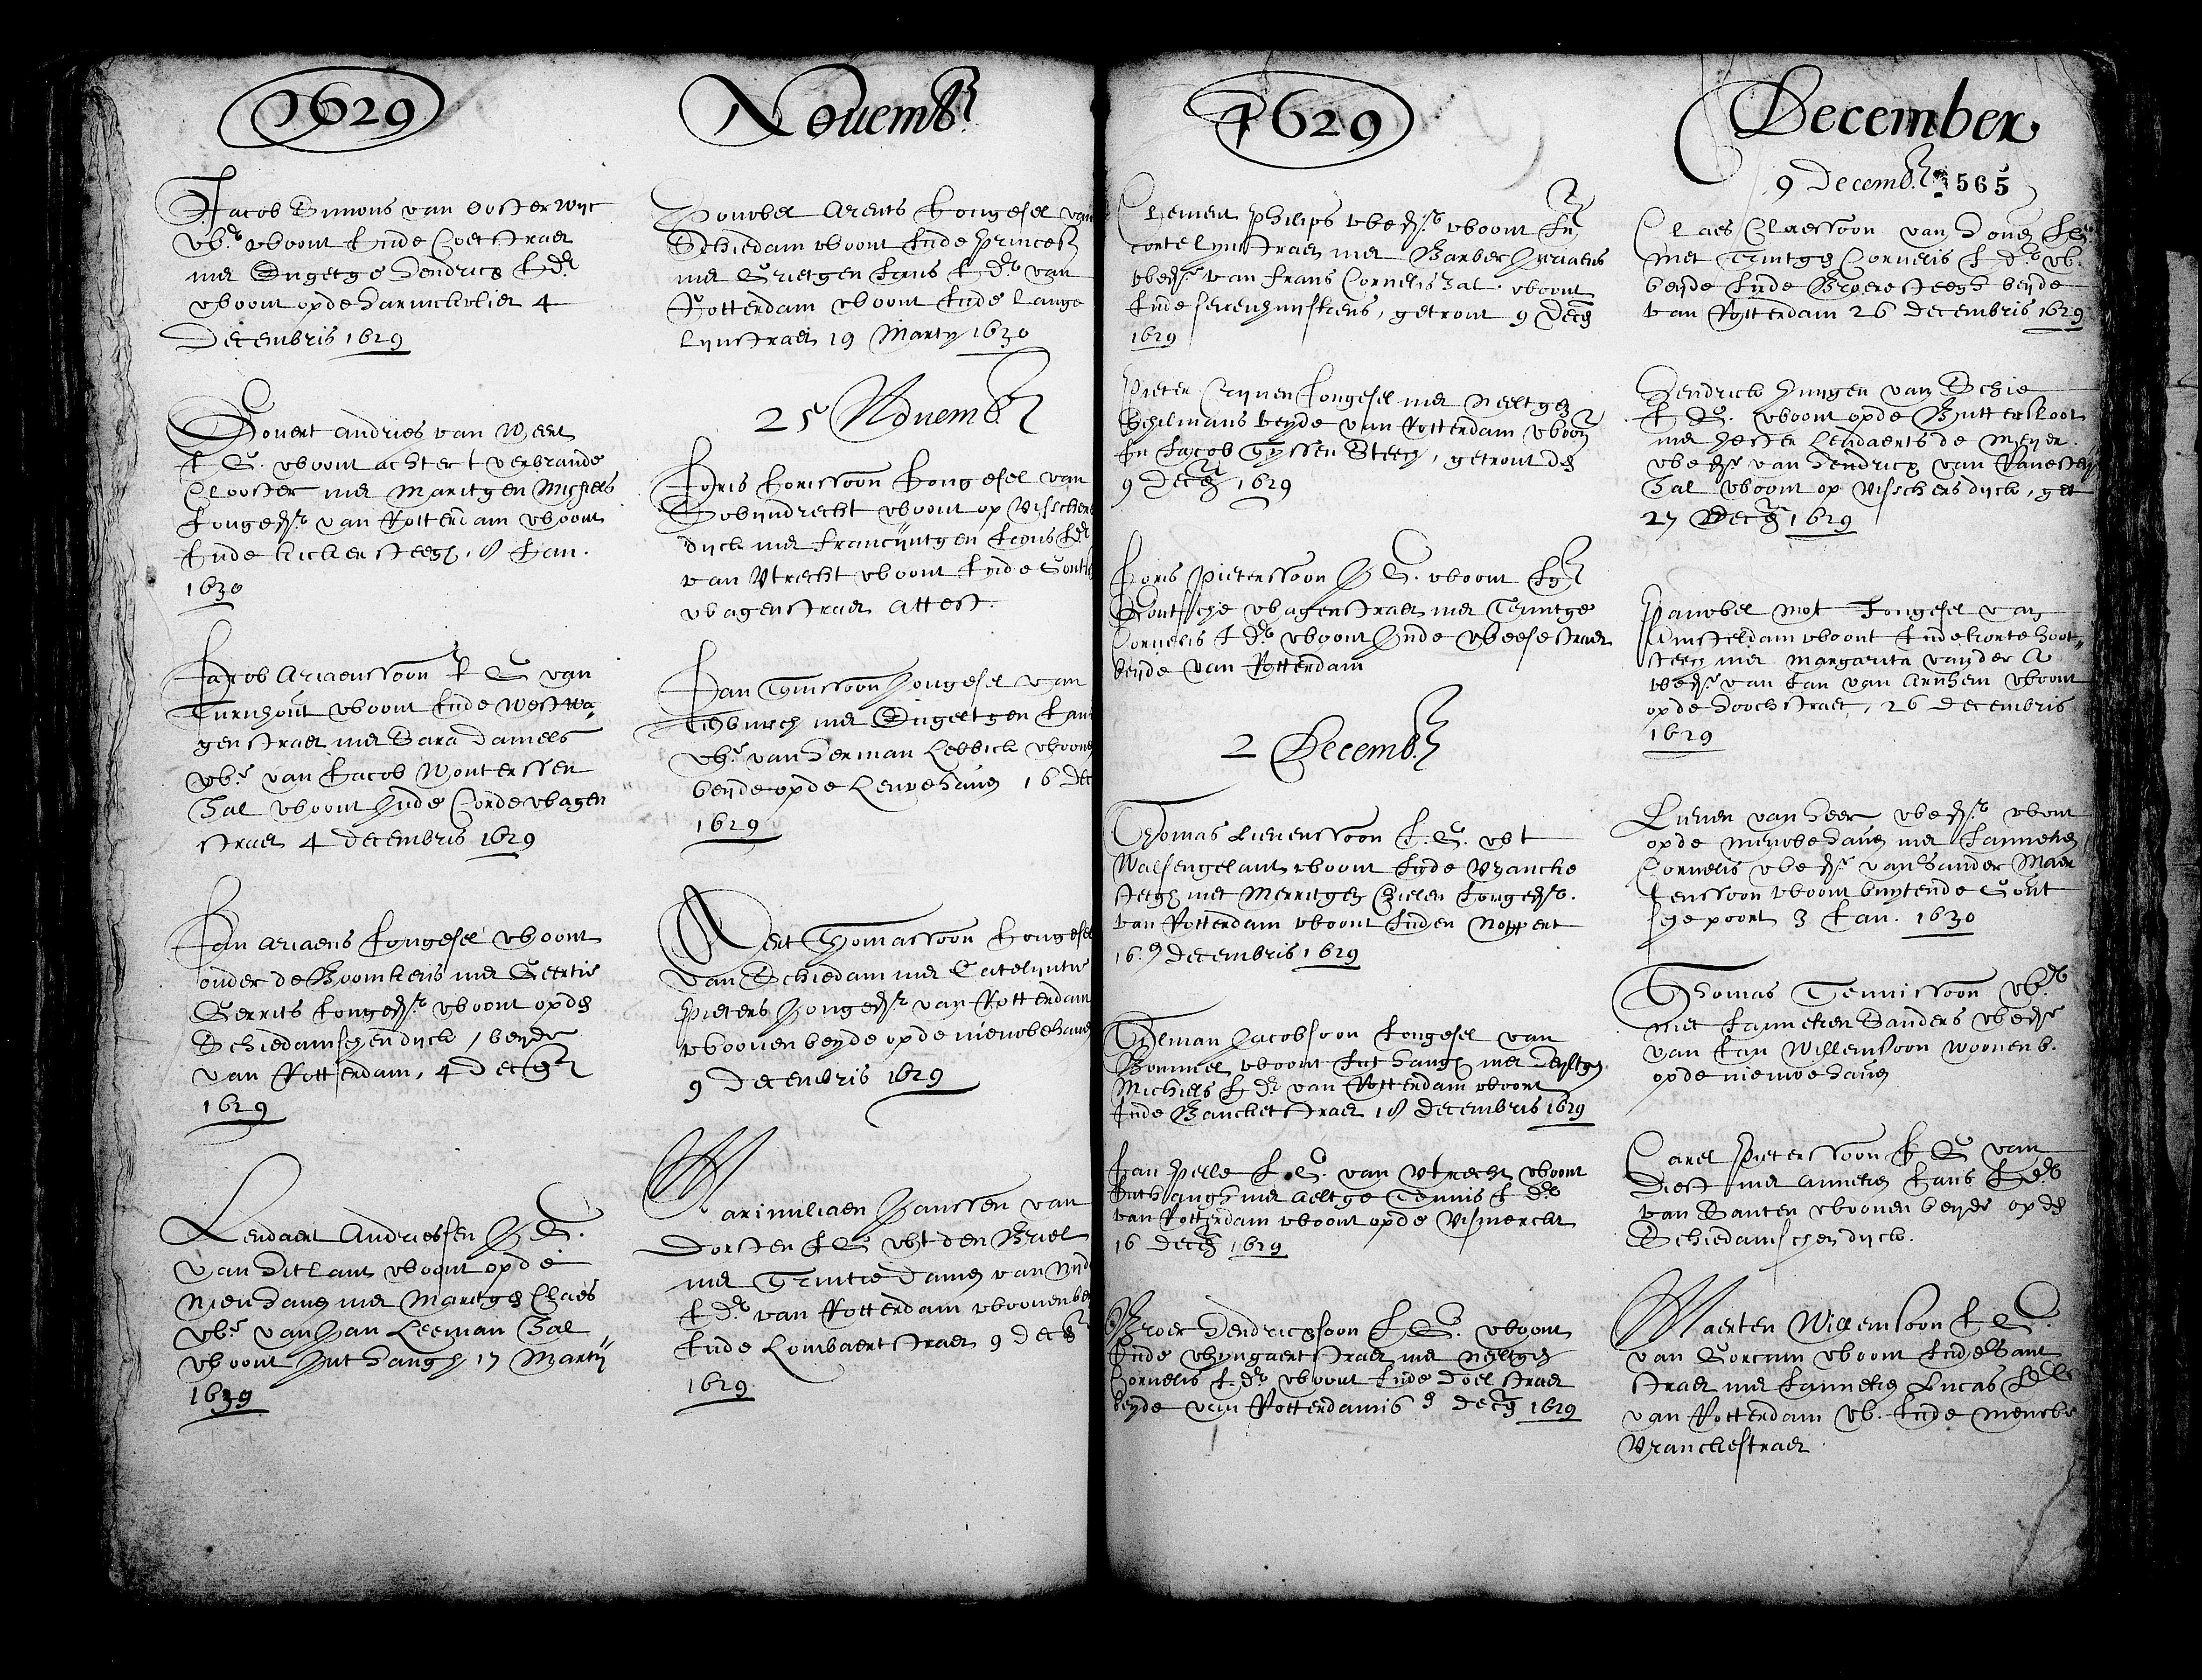 1629
Novemb.
Jacob Simons van Oosterwijc
wr woont Inde Coestraet
met Engetge Hendricx J dr
woont opde Harincvliet 4
Decembris 1629
Govert Andries van Weert
J G. woont achter t verbrande
Clooster met Maritgen Michiels
Jongedr van Rotterdam woont
Inde kickersteegh, 8 Jan.
1630
Jacob Ariaenssoon J G van
Turnhout woont Inde Westwa
genstraet met Sara Daniels
we van Jacob Wouterssen
Zal woont Inde Corde wagen
straet 4 Decembris 1629
Jan Ariaens Jongesel woont
onder de Boomkens met Geertie
Gerrits Jongedr woont opde
Schiedamschendijck, beyde
van Rotterdam, 4 Decembr
1629
Lendaert Andriessen J G.
van Ditlant woont opde
Nieuhaven met Maritge Claes
we van Jan Leeman Zal
woont Int Hangh 17 Martij
1630
Pouwel Arents Jongesel van
Schiedam woont Inde Princes
met Grietgen Jans J dr van
Rotterdam woont Inde Lange
Lijnstraet 19 Martij 1630
25 Novemb
Joris Jorissoon Jongesel van
Dobijndrecht woont op Visschers
dijck met Francijntgen Joons J dr
van Utrecht woont Inde Gouts
wagenstraet attest.
Jan Tonissoon Jongesel van
met Engeltgen Jans
we van Herman Lebbick woont
beyde opde Leuvehaven 16 Dec
1629
Aert Thomassoon Jongesel
van Schiedam met Catelijntie
Pieters Jongedr van Rotterdam
woonen beyde opde nieuwehaven
9 Decembris 1629
Maximiliaen Janssen van
Dorsten J G wt den Briel
met Trintie Damen van
J dr van Rotterdam woonen be
Inde Lombaertstraet 9 Decb
1629
1629
December
Clement Philips weedr woont In
Corte Lijnstraet met Barber Joriaens
weedr van Frans Cornelis Zal. woont
Inde , getrout 9 Dec
1629
Pieter Crijnen Jongesel met Neeltgen
Schilmans beyde van Rotterdam woon
In Jacob Tyssen Steech, getrout den
9 Dec 1629
Joris Pieterssoon J G. woont In
Goutsche wagenstraet met Trintge
Cornelis J dr woont Inde Weesestraet
beyde van Rotterdam
2 Decemb.
Thomas Lievenssoon J. G. wt
Walsengelant woont Inde Vrancke
steegh met Merritgen Gielen Jongedr.
van Rotterdam woont Inden Noppert
16 Decembris 1629
Tieleman Jacobsoon Jongesel van
Bommel woont Int Hangh met
Michiels J dr van Rotterdam woont
Inde Bancketstraet 18 Decembris 1629
Jan Pelle J. G. van Utrecht woont
Int Hangh met Aeltge Tonnis J dr
van Rotterdam woont opde Vismerckt
16 Dec 1629
Broer Hendricxsoon J. G. woont
Inde Wijngaertstraet met Neeltgen
Cornelis J. dr woont Inde Doelstraet
beyde van Rotterdam 16 Dec 1629
9 Decemb. 565
Claes Claessoon van Hoven J G
met Trintgen Cornelis J dr w.
beyde Inde Broersteegh beyde
van Rotterdam 26 Decembris 1629
Hendrick Juryen van Schie
J G. woont opde Buttersloot
met Hester Lendaerts de Meyer
weedr van Hendrick van Ravesteyn
Zal woont op Visschersdijck, get
27 Dec 1629
Pauwel Mot Jongesel van
Amsteldam woont Inde korte Hoot
steech met Margarita vander A
weedr van Jan van Arnhem woont
opde Hoochstraet, 26 Decembris
1629
Lieven van Heer weedr woont
opde nieuwehaven met Janneken
Cornelis weedr van Sander Maer
tenssoon woont buytende Gout
sche poort 3 Jan. 1630
Thomas Tennissoon wr
met Janneken Sanders weedr
van Jan Willemsoon woonen b.
opde nieuwehaven
Carel Pieterssoon J G van
Diest met Anneken Jans J dr
van Santen woonen beyde opde
Schiedamschendijck.
Maerten Willemsoon J G.
van Gorcum woont Inde Sant
straet met Janneken Lucas J dr
van Rotterdam w. Inde nieuwe
Vranckestraet